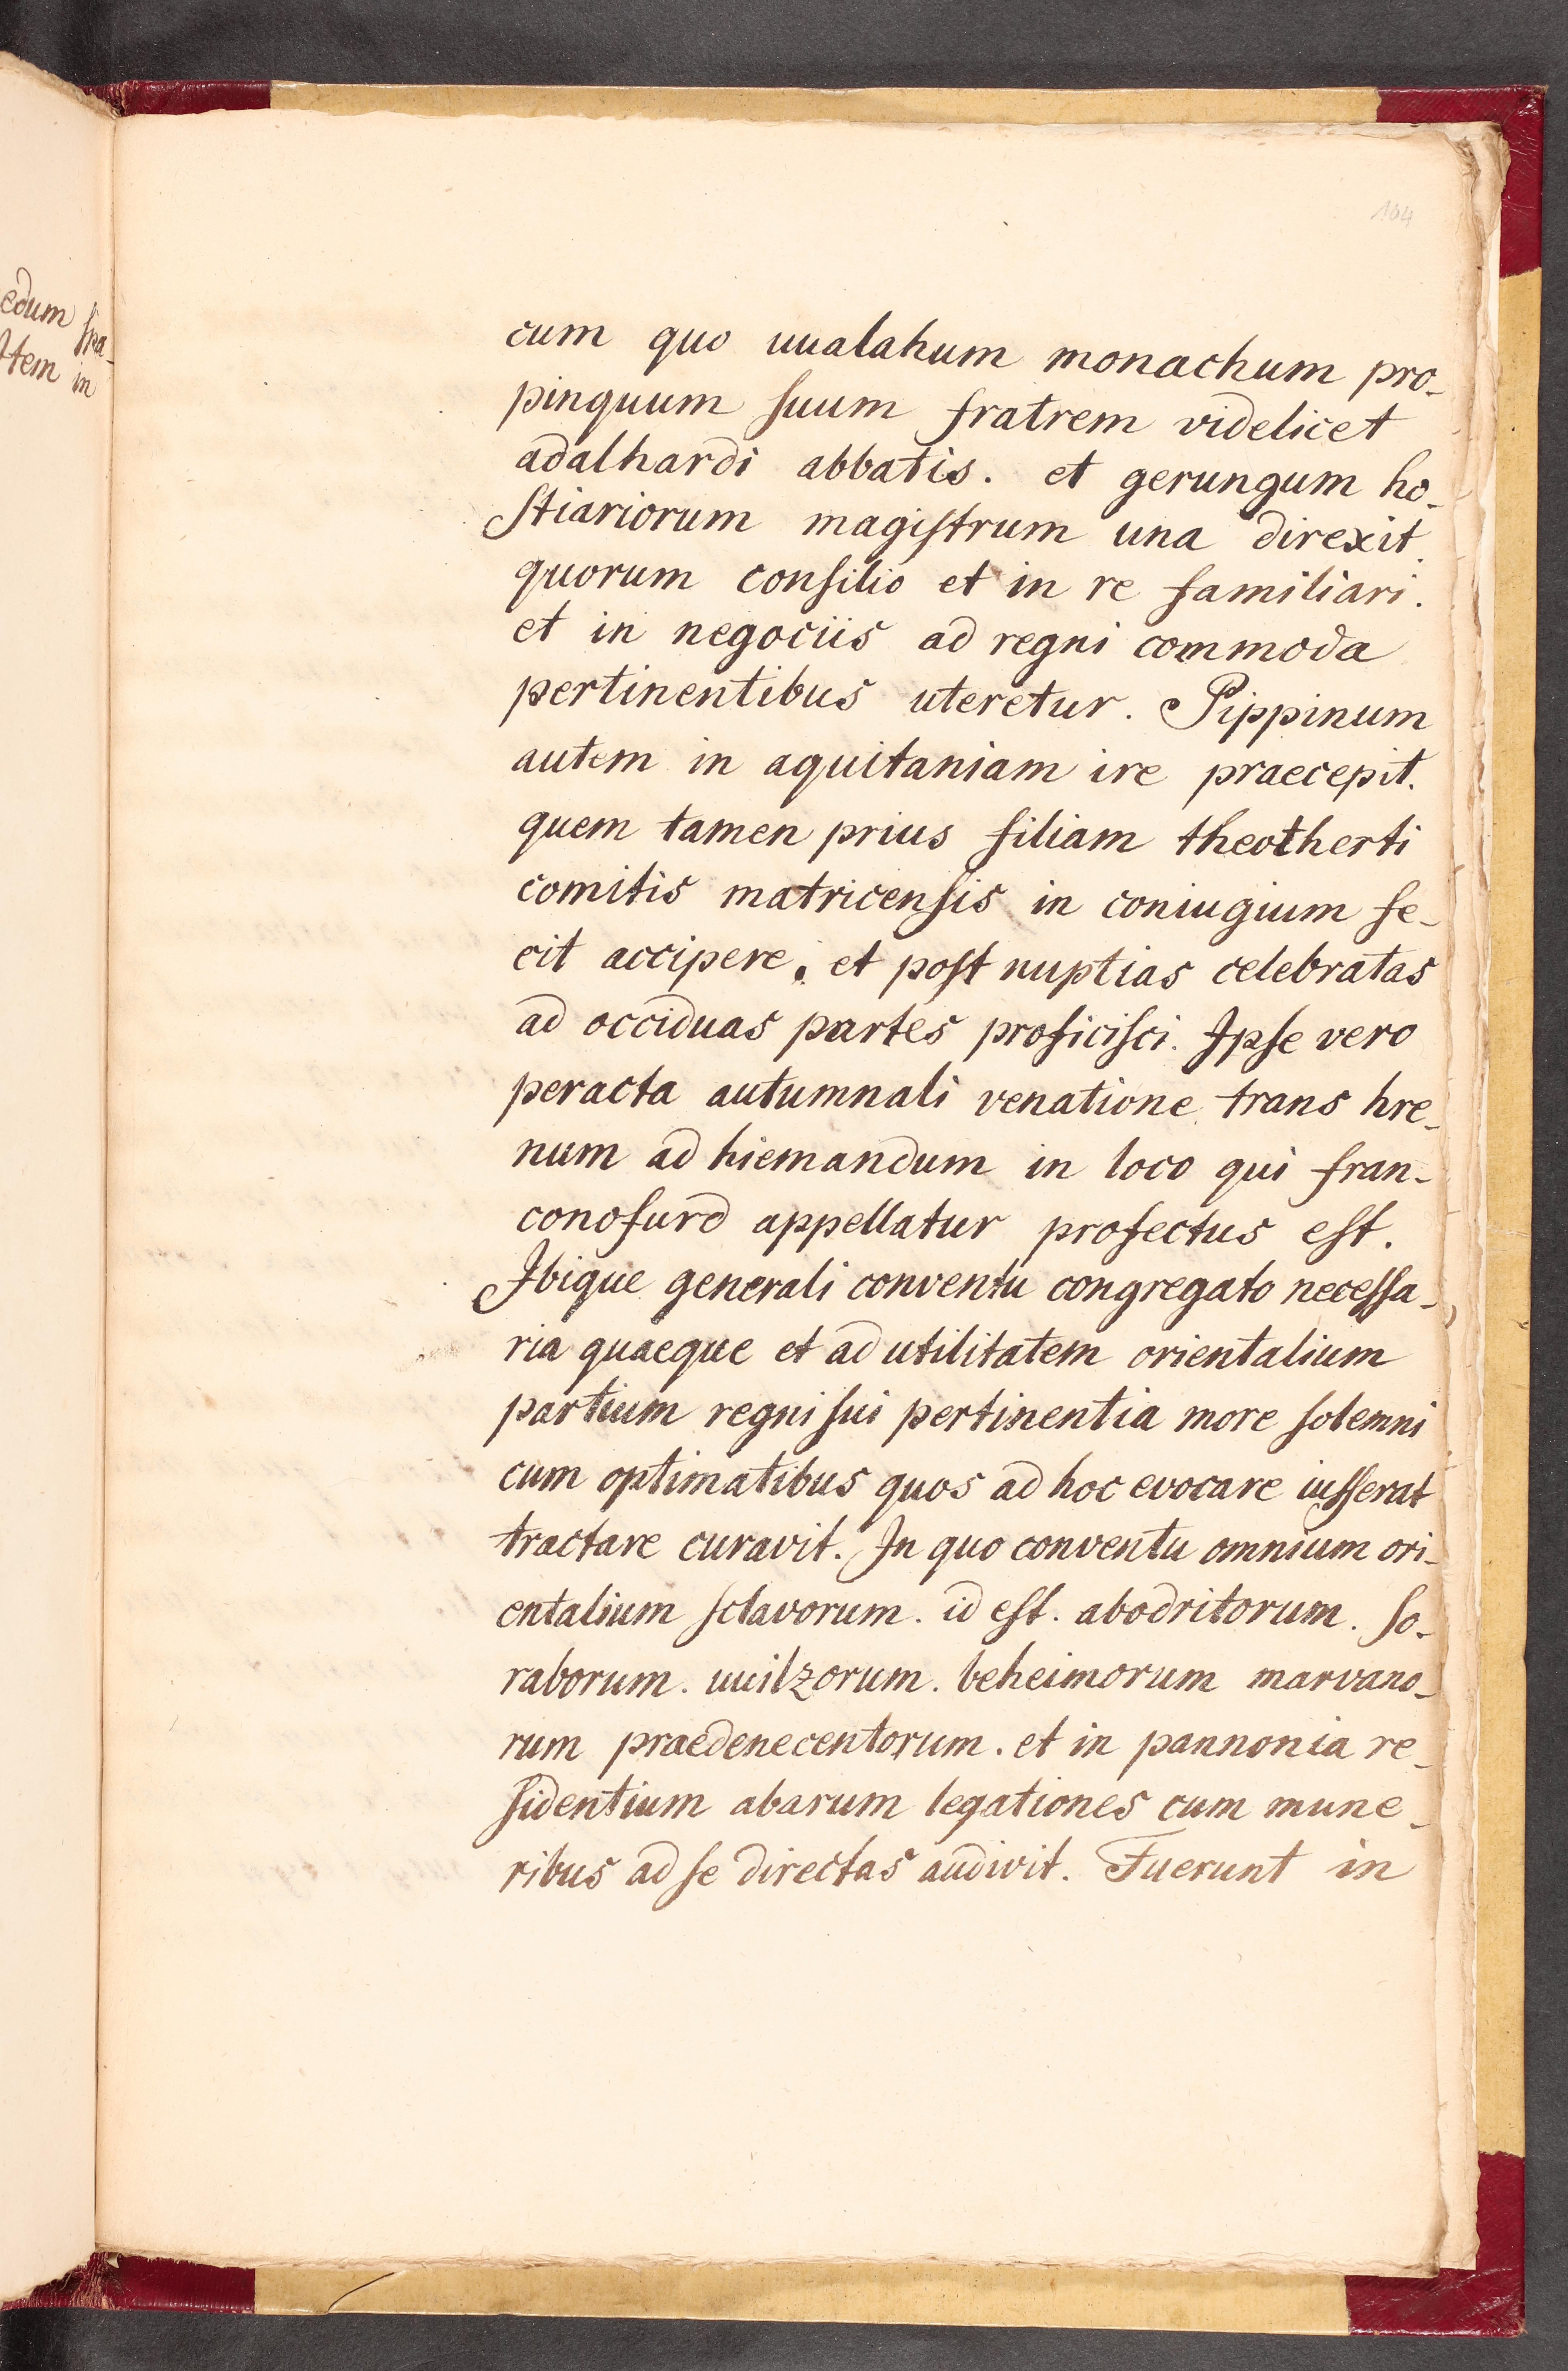 164
edum fra-
ttem in
cum quo uualahum monachum pro-
pinquum ſuum fratrem videlicet
adalhardi abbatis. et gerungum ho-
ſtiariorum magiſtrum una direxit.
quorum conſilio et in re familiari.
et in negociis ad regni commoda
pertinentibus uteretur. Pippinum
autem in aquitaniam ire praecepit.
quem tamen prius filiam theotherti
comitis matricenſis in coniugium fe-
cit accipere. et poſt nuptias celebratas
ad occiduas partes proficiſci. Ipſe vero
peracta autumnali venatione trans hre-
num ad hiemandum in loco qui fran-
conofurd appellatur profectus eſt.
Ibique generali conventu congregato neceſſa-
ria quaeque et ad utilitatem orientalium
partium regni ſui pertinentia more ſolemni
cum optimatibus quos ad hoc evocare iuſſerat
tractare curavit. In quo conventu omnium ori-
entalium ſclavorum. id eſt. abodritorum. ſo-
raborum. uuilzorum. beheimorum marvano-
rum praedenecentorum. et in pannonia re-
ſidentium abarum legationes cum mune-
ribus ad ſe directas audivit. Fuerunt in